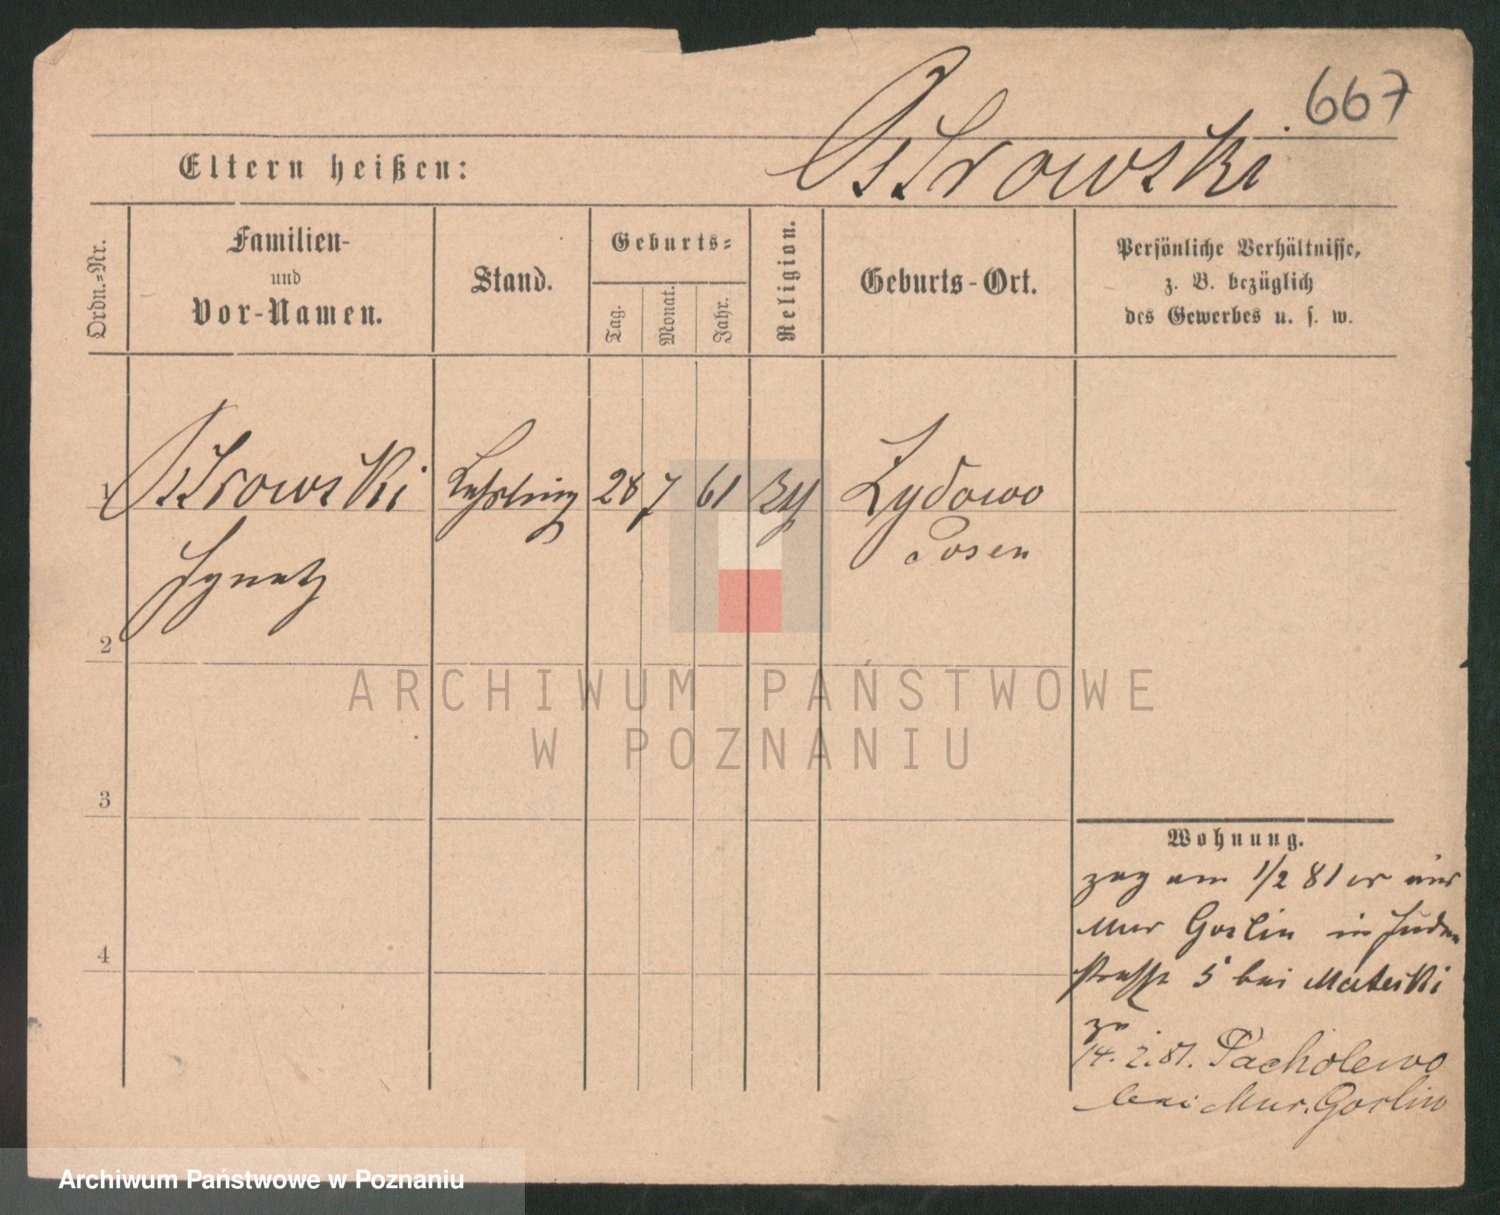 667
Ostrowski
Eltern heißen:
Ordn.-Nr.
Familien-
und
Vor-Namen.
Stand.
Geburts-
Tag.
Monat.
Jahr.
Religion.
Geburts-Ort.
Persönliche Verhältnisse,
z. B. bezüglich
des Gewerbes u. s. w.
1 Ostrowski Lehrling 28 7 61 Lydowo
Ignatz Posen
2
3
4
Wohnung.
zog am 1/2 81 er aus
Mur Goslin in Juden
strasse 5 bei Mateki
zu
14. 2. 81. Pacholewo
bei Mur. Goslin
ARCHIWUM PAŃSTWOWE
W POZNANIU
Archiwum Państwowe w Poznaniu